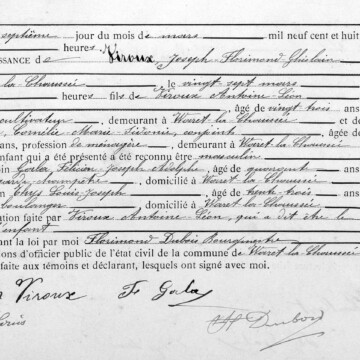 septième jour du mois de mars mil neuf cent et huit
heures
ISSANCE de Viroux, Joseph-Florimond-Ghislain
la Chaussée le vingt sept mars
heures fils de Viroux Antoine-Léon
âgé de vingt trois ans
cultivateur, demeurant à Waret la Chaussée et de
Cornélie Marie conjoints, âgée de
ans, profession de ménagère, demeurant à Waret la Chaussée
enfant qui a été présenté a été reconnu être masculin
Gorla, Félicien Joseph Adolphe, âgé de quarante
champêtre, domicilié à Waret la Chaussée
Louis Joseph, âgé de trente trois
boulanger, domicilié à Waret la Chaussée
ation faite par Viroux Antoine-Léon, qui a dit être le
l'enfant
ant la loi par moi Florimond Dubois Bourgmestre
ions d'officier public de l'état civil de la commune de Waret la Chaussée
faite aux témoins et déclarant, lesquels ont signé avec moi.
Viroux F Gorla
Dubois